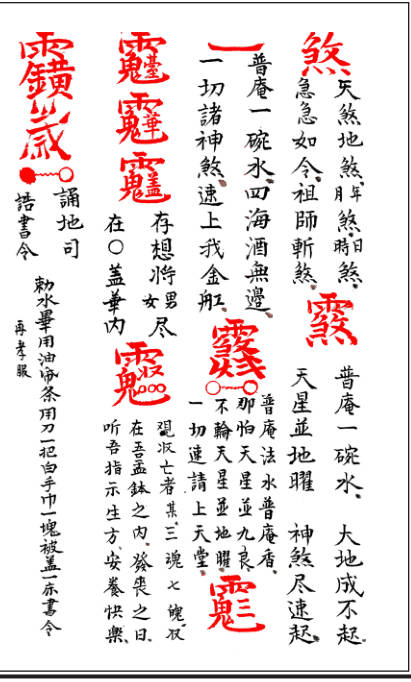 煞
天煞地煞年月煞日時煞
急急如令祖師斬煞
普庵一碗水 大地成不起
天星並地曜 神煞尽速起
一
普庵一碗水四海酒無邊
一切諸神煞速上我金舡
普庵法水普庵香
那怕天星並九良
不輪天星並地曜
一切速請上天堂
存想將男女尽
在〇蓋華内
収亡者某三魂七魄収
在吾盂鉢之内發喪之日
听吾指示生方安養快樂
誦地司
誥書令
勅水畢用油条用刀一把白手巾一塊被盖一床書令
再孝服